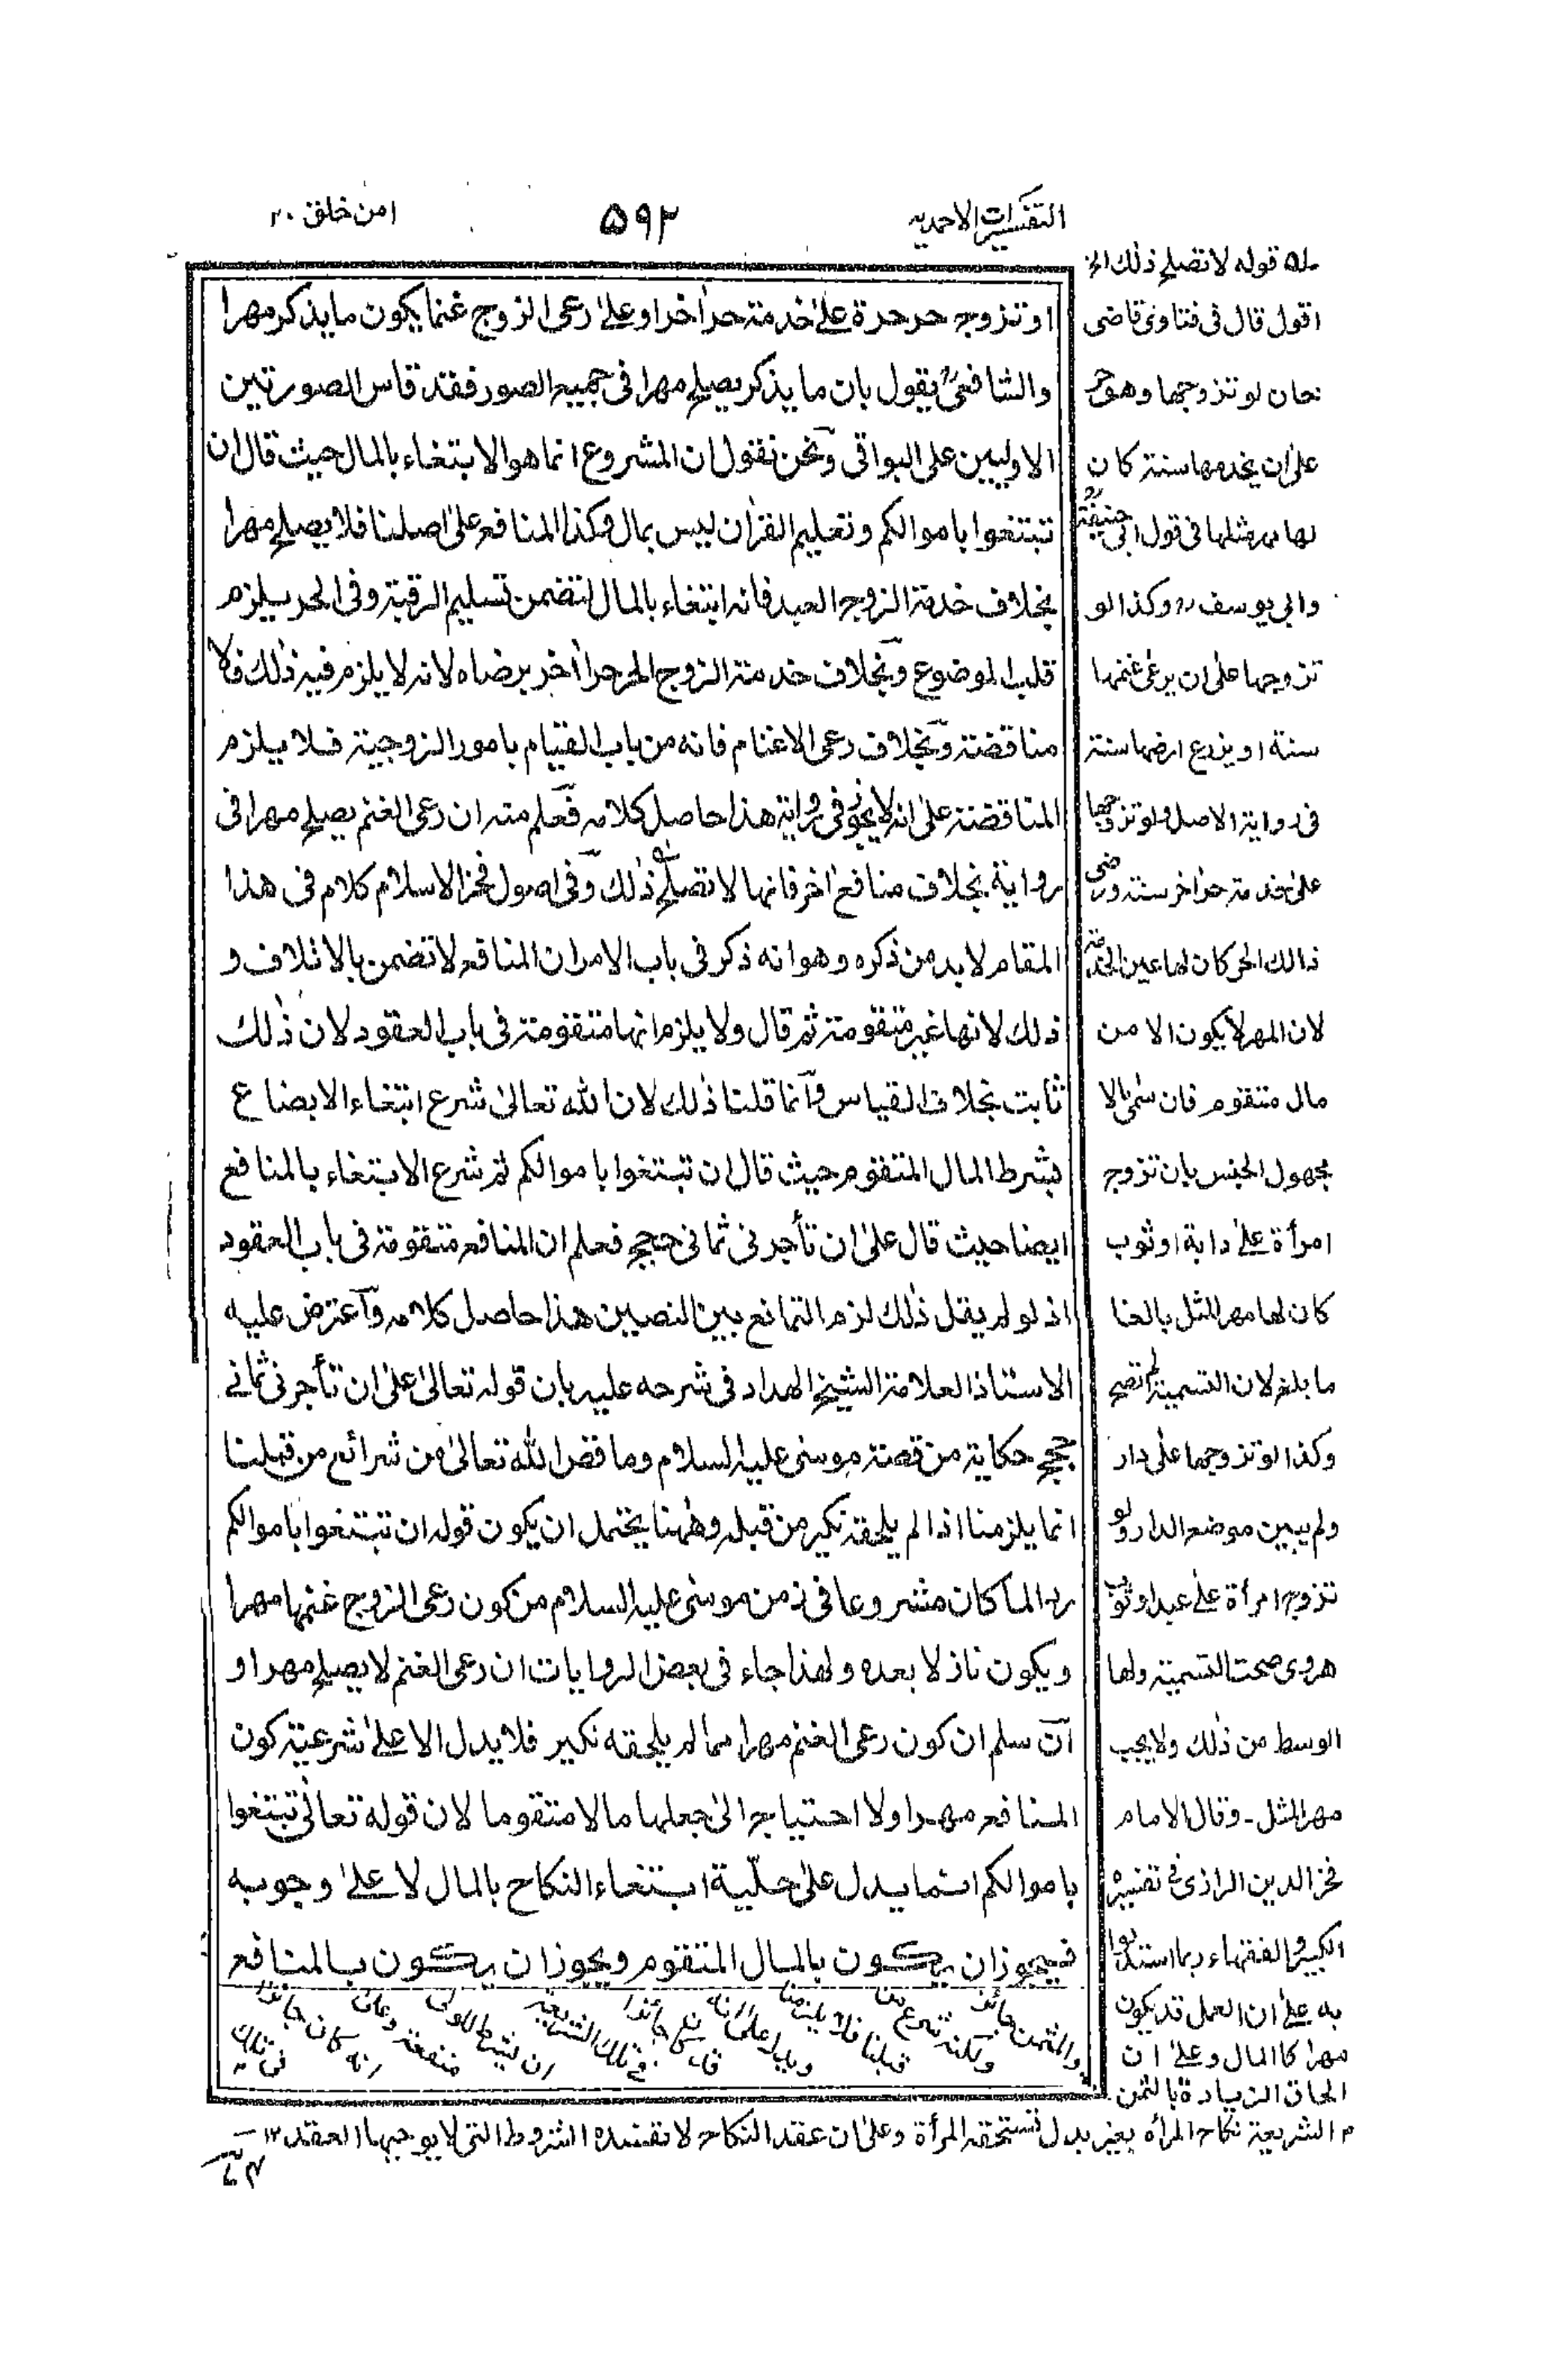 التفسيرات الاحمدية
۵۹۲
امن خلق ۲۰
او تزوج حر حرة على خدمة حر اٰخر او على رعى الزوج غنما يكون ما يذكر مهرا
والشافعىؒ يقول بان ما يذكر يصلح مهرا فى جميع الصور فقد قاس الصورتين
الاوليين على البواقى ونحن نقول ان المشروع انما هو الابتغاء بالمال حيث قال ان
تبتغوا باموالكم وتعليم القراٰن ليس بمال وكذا المنافع على اصلنا فلا يصلح مهرا
بخلاف خدمة الزوج العبد فانه ابتغاء بالمال لتضمن تسليم الرقبة وفى الحر يلزم
قلب الموضوع وبخلاف خدمة الزوج الحر حرا اٰخر برضاه لانه لا يلزم فيه ذٰلك فلا
مناقضة وبخلاف رعى الاغنام فانه من باب القيام بامور الزوجية فلا يلزم
المناقضة على انه لا يجوز فى رواية هذا حاصل كلامه فعلم منه ان رعى الغنم يصلح مهرا فى
رواية بخلاف منافع اخر فانها لا تصلح ذٰلك وفى اصول فخر الاسلام كلام فى هذا
المقام لابد من ذكره وهو انه ذكر فى باب الامر ان المنافع لا تضمن بالاتلاف و
ذلك لانها غير متقومة ثم قال ولا يلزم انها متقومة فى باب العقود لان ذٰلك
ثابت بخلاف القياس وانما قلنا ذٰلك لان الله تعالىٰ شرع ابتغاء الابضاع
بشرط المال المتقوم حيث قال ان تبتغوا باموالكم ثم شرع الابتغاء بالمنافع
ايضا حيث قال علىٰ ان تأجرنى ثمانى حجج فعلم ان المنافع متقومة فى باب العقود
اذ لو لم يقل ذٰلك لزم التمانع بين النصيين هذا حاصل كلامه واعترض عليه
الاستاذ العلامة الشيخ الهداد فى شرحه عليه بان قوله تعالىٰ علىٰ ان تأجرنى ثمانى
حجج حكاية من قصة موسىٰ عليه السلام وما قص الله تعالىٰ من شرائع من قبلنا
انما يلزمنا اذا لم يلحقه نكير من قبله وههنا يحتمل ان يكون قوله ان تبتغوا باموالكم
رد الما كان مشروعا فى زمن موسىٰ عليه السلام من كون رعى الزوج غنمها مهرا
ويكون نازلا بعده ولهذا جاء فى بعض الروايات ان رعى الغنم لا يصلح مهرا و
ان سلم ان كون رعى الغنم مهرا مما لم يلحقه نكير فلا يدل الا علىٰ شرعية كون
المنافع مهرا ولا احتياج الىٰ جعلها مالا متقوما لان قوله تعالىٰ تبتغوا
باموالكم انما يدل علىٰ حلّية ابتغاء النكاح بالمال لا علىٰ وجوبه
فيجوز ان يكون بالمال المتقوم ويجوز ان يكون بالمنافع
ـلـه قوله لا تصلح ذٰلك الخ
اقول قال فى فتاوى قاضى
خان لو تزوجها وهو حر
علىٰ ان يخدمها سنة كان
لها مهر مثلها فى قول ابى حنيفةؒ
وابى يوسفؒ وكذا لو
تزوجها علىٰ ان يرعىٰ غنمها
سنة او يزرع ارضها سنة
فى رواية الاصل ولو تزوجها
علىٰ خدمة حر اٰخر سنة ورضى
ذالك الحر كان لها عين الخدمة
لان المهر لا يكون الا من
مال متقوم فان سمى مالا
مجهول الجنس بان تزوج
امرأة علىٰ دابة او ثوب
كان لها مهر المثل بالغا
ما بلغ لان التسمية لم تصح
وكذا لو تزوجها علىٰ دار
ولم يبين موضع الدار ولو
تزوج امرأة علىٰ عبد او ثوب
هروى صحت التسمية ولها
الوسط من ذٰلك ولا يجب
مهر المثل۔ وقال الامام
فخر الدين الرازى فى تفسيره
الكبير والفقهاء ربما استدلوا
به علىٰ ان العمل قد يكون
مهرا كالمال وعلىٰ ان
الحاق الزيادة بالثمن
والمثمن جائز
ولكنه شرع من
قبلنا فلا يلزمنا
ويدل علىٰ انه
قد كان جائزا
فى تلك الشريعة
ان يشترط للولى
منفعة وعلىٰ
انه كان جائزا
فى تلك
م الشريعة نكاح المرأة بغير بدل تستحقه المرأة وعلىٰ ان عقد النكاح لا تفسده الشروط التى لا يوجبها العقد ۱۲